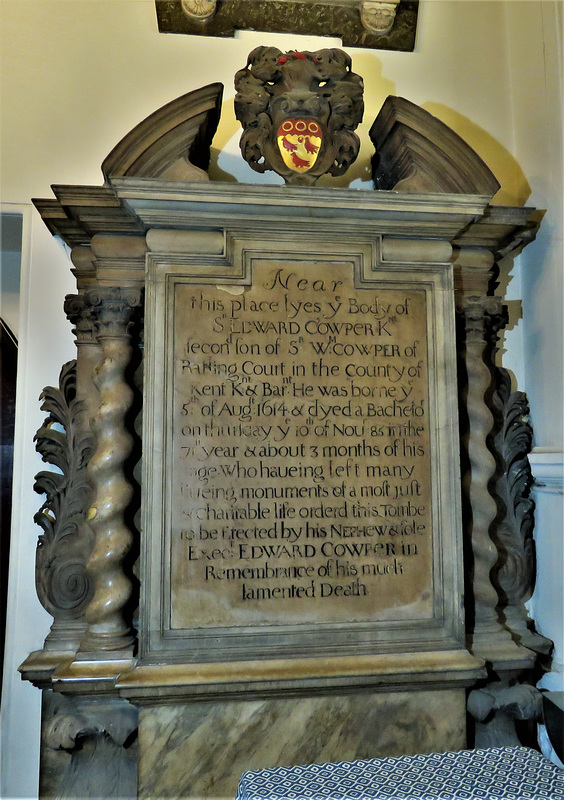 Near
this place lyes yᵉ Body of
Sʳ EDWARD COWPER Kⁿᵗ
second son of Sʳ Wᴹ COWPER of
Ratling Court in the County of
Kent Kⁿᵗ & Barⁿᵗ. He was borne yᵉ
5ᵗʰ of Augˢᵗ 1614 & dyed a Bacheloʳ
on thursday yᵉ 10ᵗʰ of Nou: 85 in the
71ˢᵗ year & about 3 months of his
age Who haueing left many
liueing monuments of a most just
& charitable life orderd this Tombe
to be Erected by his NEPHEW & sole
Execʳ EDWARD COWPER in
Remembrance of his much
lamented Death